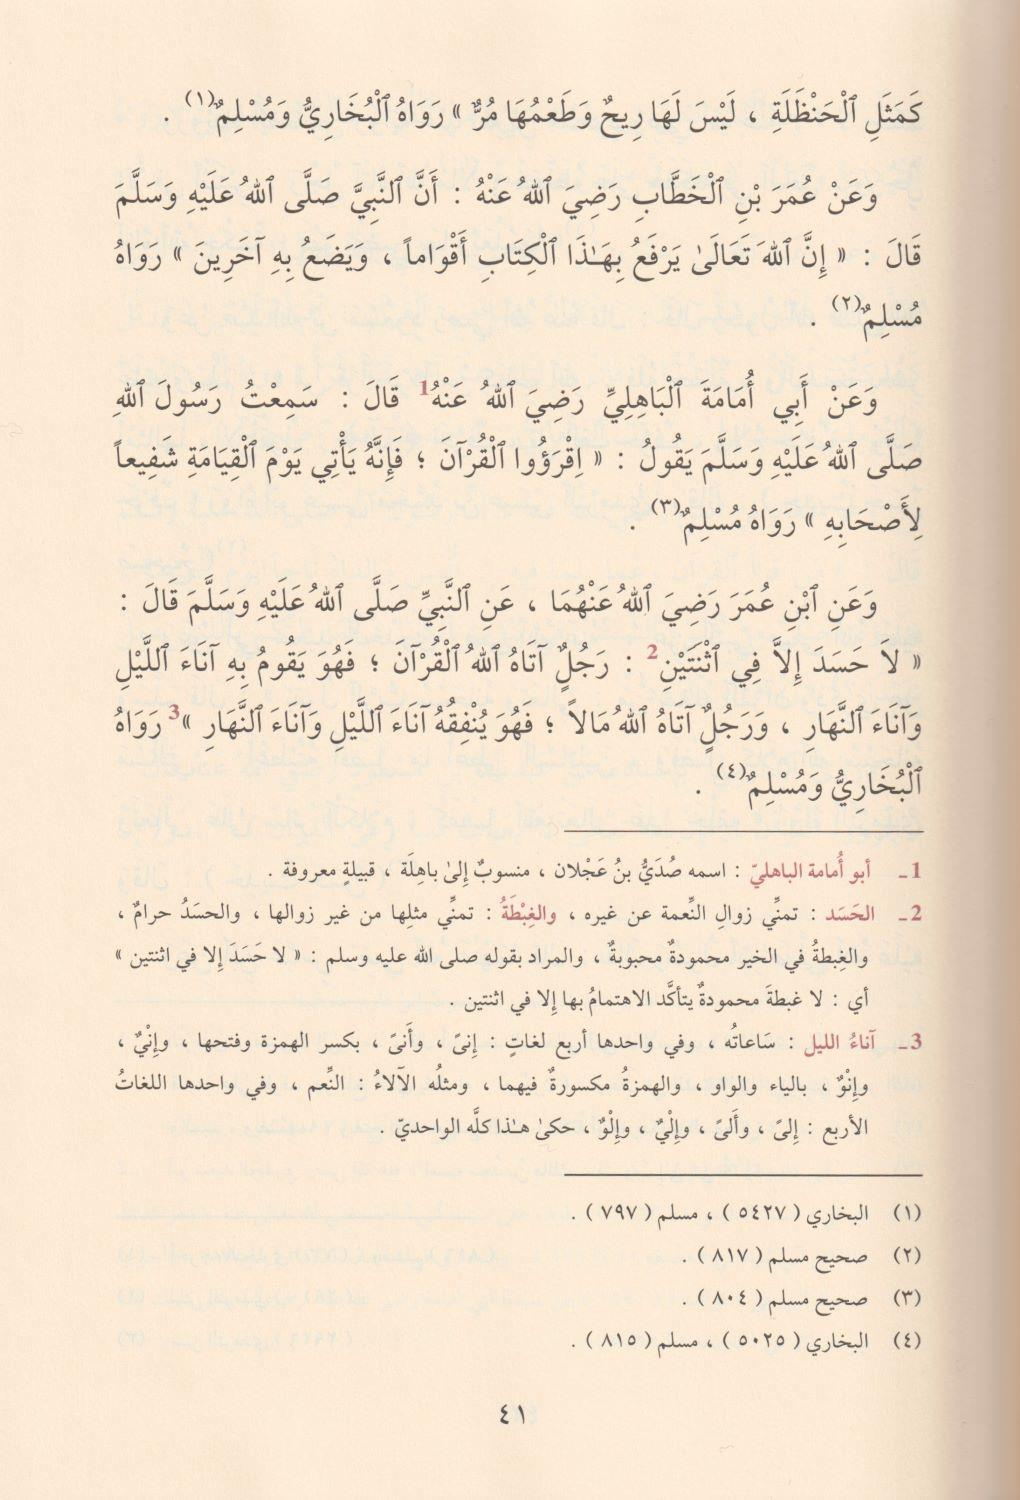 كَمَثَلِ ٱلْحَنْظَلَةِ ، لَيْسَ لَهَا رِيحٌ وَطَعْمُهَا مُرٌّ » رَوَاهُ ٱلْبُخَارِيُّ وَمُسْلِمٌ(١) .
وَعَنْ عُمَرَ بْنِ ٱلْخَطَّابِ رَضِيَ ٱللهُ عَنْهُ : أَنَّ ٱلنَّبِيَّ صَلَّى ٱللهُ عَلَيْهِ وَسَلَّمَ
قَالَ : « إِنَّ ٱللهَ تَعَالَىٰ يَرْفَعُ بِهَـٰذَا ٱلْكِتَابِ أَقْوَاماً ، وَيَضَعُ بِهِ آخَرِينَ » رَوَاهُ
مُسْلِمٌ(٢) .
وَعَنْ أَبِي أُمَامَةَ ٱلْبَاهِلِيِّ رَضِيَ ٱللهُ عَنْهُ1 قَالَ : سَمِعْتُ رَسُولَ ٱللهِ
صَلَّى ٱللهُ عَلَيْهِ وَسَلَّمَ يَقُولُ : « اِقْرَؤُوا ٱلْقُرْآنَ ؛ فَإِنَّهُ يَأْتِي يَوْمَ ٱلْقِيَامَةِ شَفِيعاً
لِأَصْحَابِهِ » رَوَاهُ مُسْلِمٌ(٣) .
وَعَنِ ٱبْنِ عُمَرَ رَضِيَ ٱللهُ عَنْهُمَا ، عَنِ ٱلنَّبِيِّ صَلَّى ٱللهُ عَلَيْهِ وَسَلَّمَ قَالَ :
« لاَ حَسَدَ إِلاَّ فِي ٱثْنَتَيْنِ2 : رَجُلٌ آتَاهُ ٱللهُ ٱلْقُرْآنَ ؛ فَهُوَ يَقُومُ بِهِ آنَاءَ ٱللَّيْلِ
وَآنَاءَ ٱلنَّهَارِ ، وَرَجُلٌ آتَاهُ ٱللهُ مَالاً ؛ فَهُوَ يُنْفِقُهُ آنَاءَ ٱللَّيْلِ وَآنَاءَ ٱلنَّهَارِ »3 رَوَاهُ
ٱلْبُخَارِيُّ وَمُسْلِمٌ(٤) .
1ـ أبو أُمامة الباهليّ : اسمه صُدَيُّ بنُ عَجْلان ، منسوبٌ إِلىٰ باهِلَة ، قبيلةٍ معروفة .
2ـ الحَسَد : تمنِّي زوالِ النِّعمة عن غيره ، والغِبْطَةُ : تمنِّي مثلِها من غير زوالها ، والحسَدُ حرامٌ ،
والغِبطةُ في الخير محمودةٌ محبوبةٌ ، والمراد بقوله صلى الله عليه وسلم : « لا حَسَدَ إِلا في اثنتين »
أي : لا غبطةَ محمودةٌ يتأكَّد الاهتمامُ بها إِلا في اثنتين .
3ـ آناءُ الليل : سَاعاتُه ، وفي واحدها أربع لغاتٍ : إنىً ، وأَنىً ، بكسر الهمزة وفتحها ، وإِنْيٌ ،
وإِنْوٌ ، بالياء والواو ، والهمزةُ مكسورةٌ فيهما ، ومثلُه الآلاءُ : النِّعم ، وفي واحدها اللغاتُ
الأربع : إِلىً ، وأَلىً ، وإِلْيٌ ، وإِلْوٌ ، حكىٰ هـٰذا كلَّه الواحديّ .
(١) البخاري ( ٥٤٢٧ ) ، مسلم ( ٧٩٧ ) .
(٢) صحيح مسلم ( ٨١٧ ) .
(٣) صحيح مسلم ( ٨٠٤ ) .
(٤) البخاري ( ٥٠٢٥ ) ، مسلم ( ٨١٥ ) .
٤١